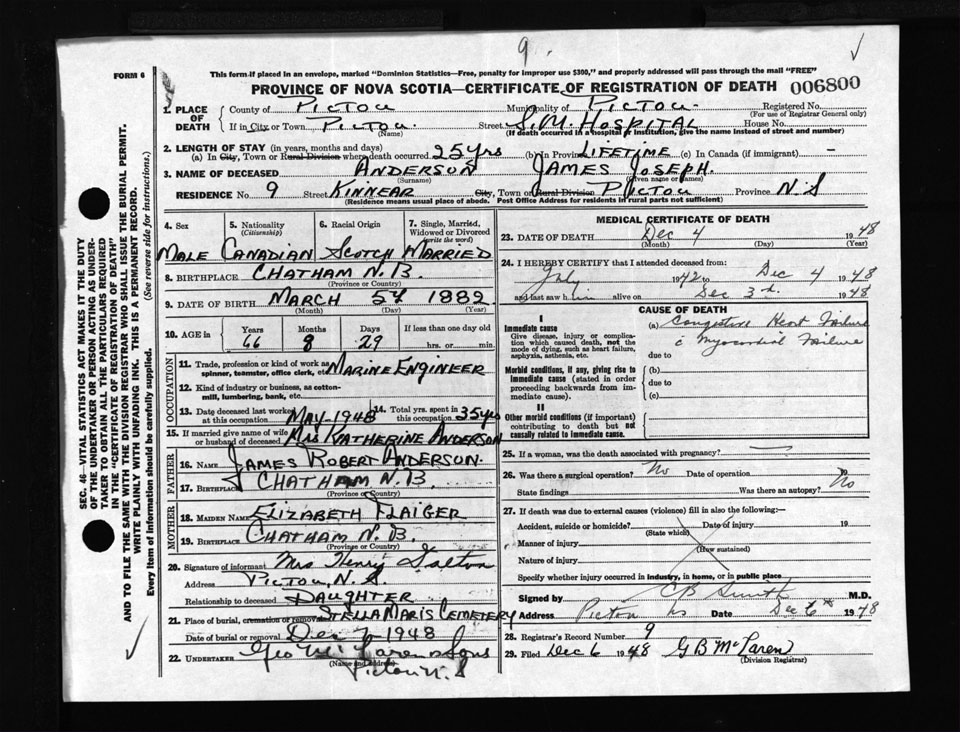 9.
FORM 6
This form if placed in an envelope, marked "Dominion Statistics—Free, penalty for improper use $300," and properly addressed will pass through the mail "FREE"
PROVINCE OF NOVA SCOTIA—CERTIFICATE OF REGISTRATION OF DEATH 006800
1. PLACE OF DEATH County of PICTOU Municipality of PICTOU Registered No.
(For use of Registrar General only)
If in City or Town PICTOU Street S.M. HOSPITAL House No.
(Name) (If death occurred in a hospital or institution, give the name instead of street and number)
2. LENGTH OF STAY (in years, months and days)
(a) In City, Town or Rural Division where death occurred 25 yrs (b) in Province LIFETIME (c) In Canada (if immigrant) —
3. NAME OF DECEASED ANDERSON JAMES JOSEPH.
(Surname) (Given name or names)
RESIDENCE No 9 Street KINNEAR City, Town or Rural Division PICTOU Province N.S
(Residence means usual place of abode. Post Office Address for residents in rural parts not sufficient)
4. Sex 5. Nationality (Citizenship) 6. Racial Origin 7. Single, Married, Widowed or Divorced (write the word)
MALE CANADIAN SCOTCH MARRIED
8. BIRTHPLACE CHATHAM N.B.
(Province or Country)
9. DATE OF BIRTH MARCH 5th 1882
(Month) (Day) (Year)
10. AGE in Years Months Days If less than one day old
66 8 29 hrs. or min.
OCCUPATION
11. Trade, profession or kind of work as spinner, teamster, office clerk, etc. MARINE ENGINEER
12. Kind of industry or business, as cotton-mill, lumbering, bank, etc.
13. Date deceased last worked at this occupation MAY-1948 14. Total yrs. spent in this occupation 35 yrs
15. If married give name of wife or husband of deceased MRS KATHERINE ANDERSON
FATHER
16. Name JAMES ROBERT ANDERSON.
17. Birthplace CHATHAM N.B.
(Province or Country)
MOTHER
18. Maiden Name ELIZABETH FLAIGER
19. Birthplace CHATHAM N.B.
(Province or Country)
20. Signature of informant Mrs Henry
Address PICTOU, N.S.
Relationship to deceased DAUGHTER
21. Place of burial, cremation or removal STELLA MARIS CEMETERY
Date of burial or removal Dec 7 1948
22. UNDERTAKER Geo McLaren & Sons
(Name and Address)
Pictou N.S
MEDICAL CERTIFICATE OF DEATH
23. DATE OF DEATH Dec 4 1948
(Month) (Day) (Year)
24. I HEREBY CERTIFY that I attended deceased from:
July 1942 to Dec 4 1948
and last saw him alive on Dec 3rd. 1948
CAUSE OF DEATH
I
Immediate cause
Give disease, injury or complication which caused death, not the mode of dying, such as heart failure, asphyxia, asthenia, etc.
(a) Congestive Heart Failure
c Myocardial Failure
due to
Morbid conditions, if any, giving rise to immediate cause (stated in order proceeding backwards from immediate cause).
(b)
due to
(c)
II
Other morbid conditions (if important) contributing to death but not causally related to immediate cause.
25. If a woman, was the death associated with pregnancy?
26. Was there a surgical operation? No Date of operation 19
State findings Was there an autopsy? No
27. If death was due to external causes (violence) fill in also the following:—
Accident, suicide or homicide? Date of injury 19
(State which)
Manner of injury
(How sustained)
Nature of injury
Specify whether injury occurred in industry, in home, or in public place
Signed by CB Smith M.D.
Address Pictou NS Date Dec 6th 1948
28. Registrar's Record Number 9
29. Filed Dec 6 1948 G B McLaren
(Division Registrar)
SEC. 46—VITAL STATISTICS ACT MAKES IT THE DUTY
OF THE UNDERTAKER OR PERSON ACTING AS UNDER-
TAKER TO OBTAIN ALL THE PARTICULARS REQUIRED
IN THE "CERTIFICATE OF REGISTRATION OF DEATH"
AND TO FILE THE SAME WITH THE DIVISION REGISTRAR WHO SHALL ISSUE THE BURIAL PERMIT.
WRITE PLAINLY WITH UNFADING INK. THIS IS A PERMANENT RECORD.
Every item of information should be carefully supplied. (See reverse side for instructions.)